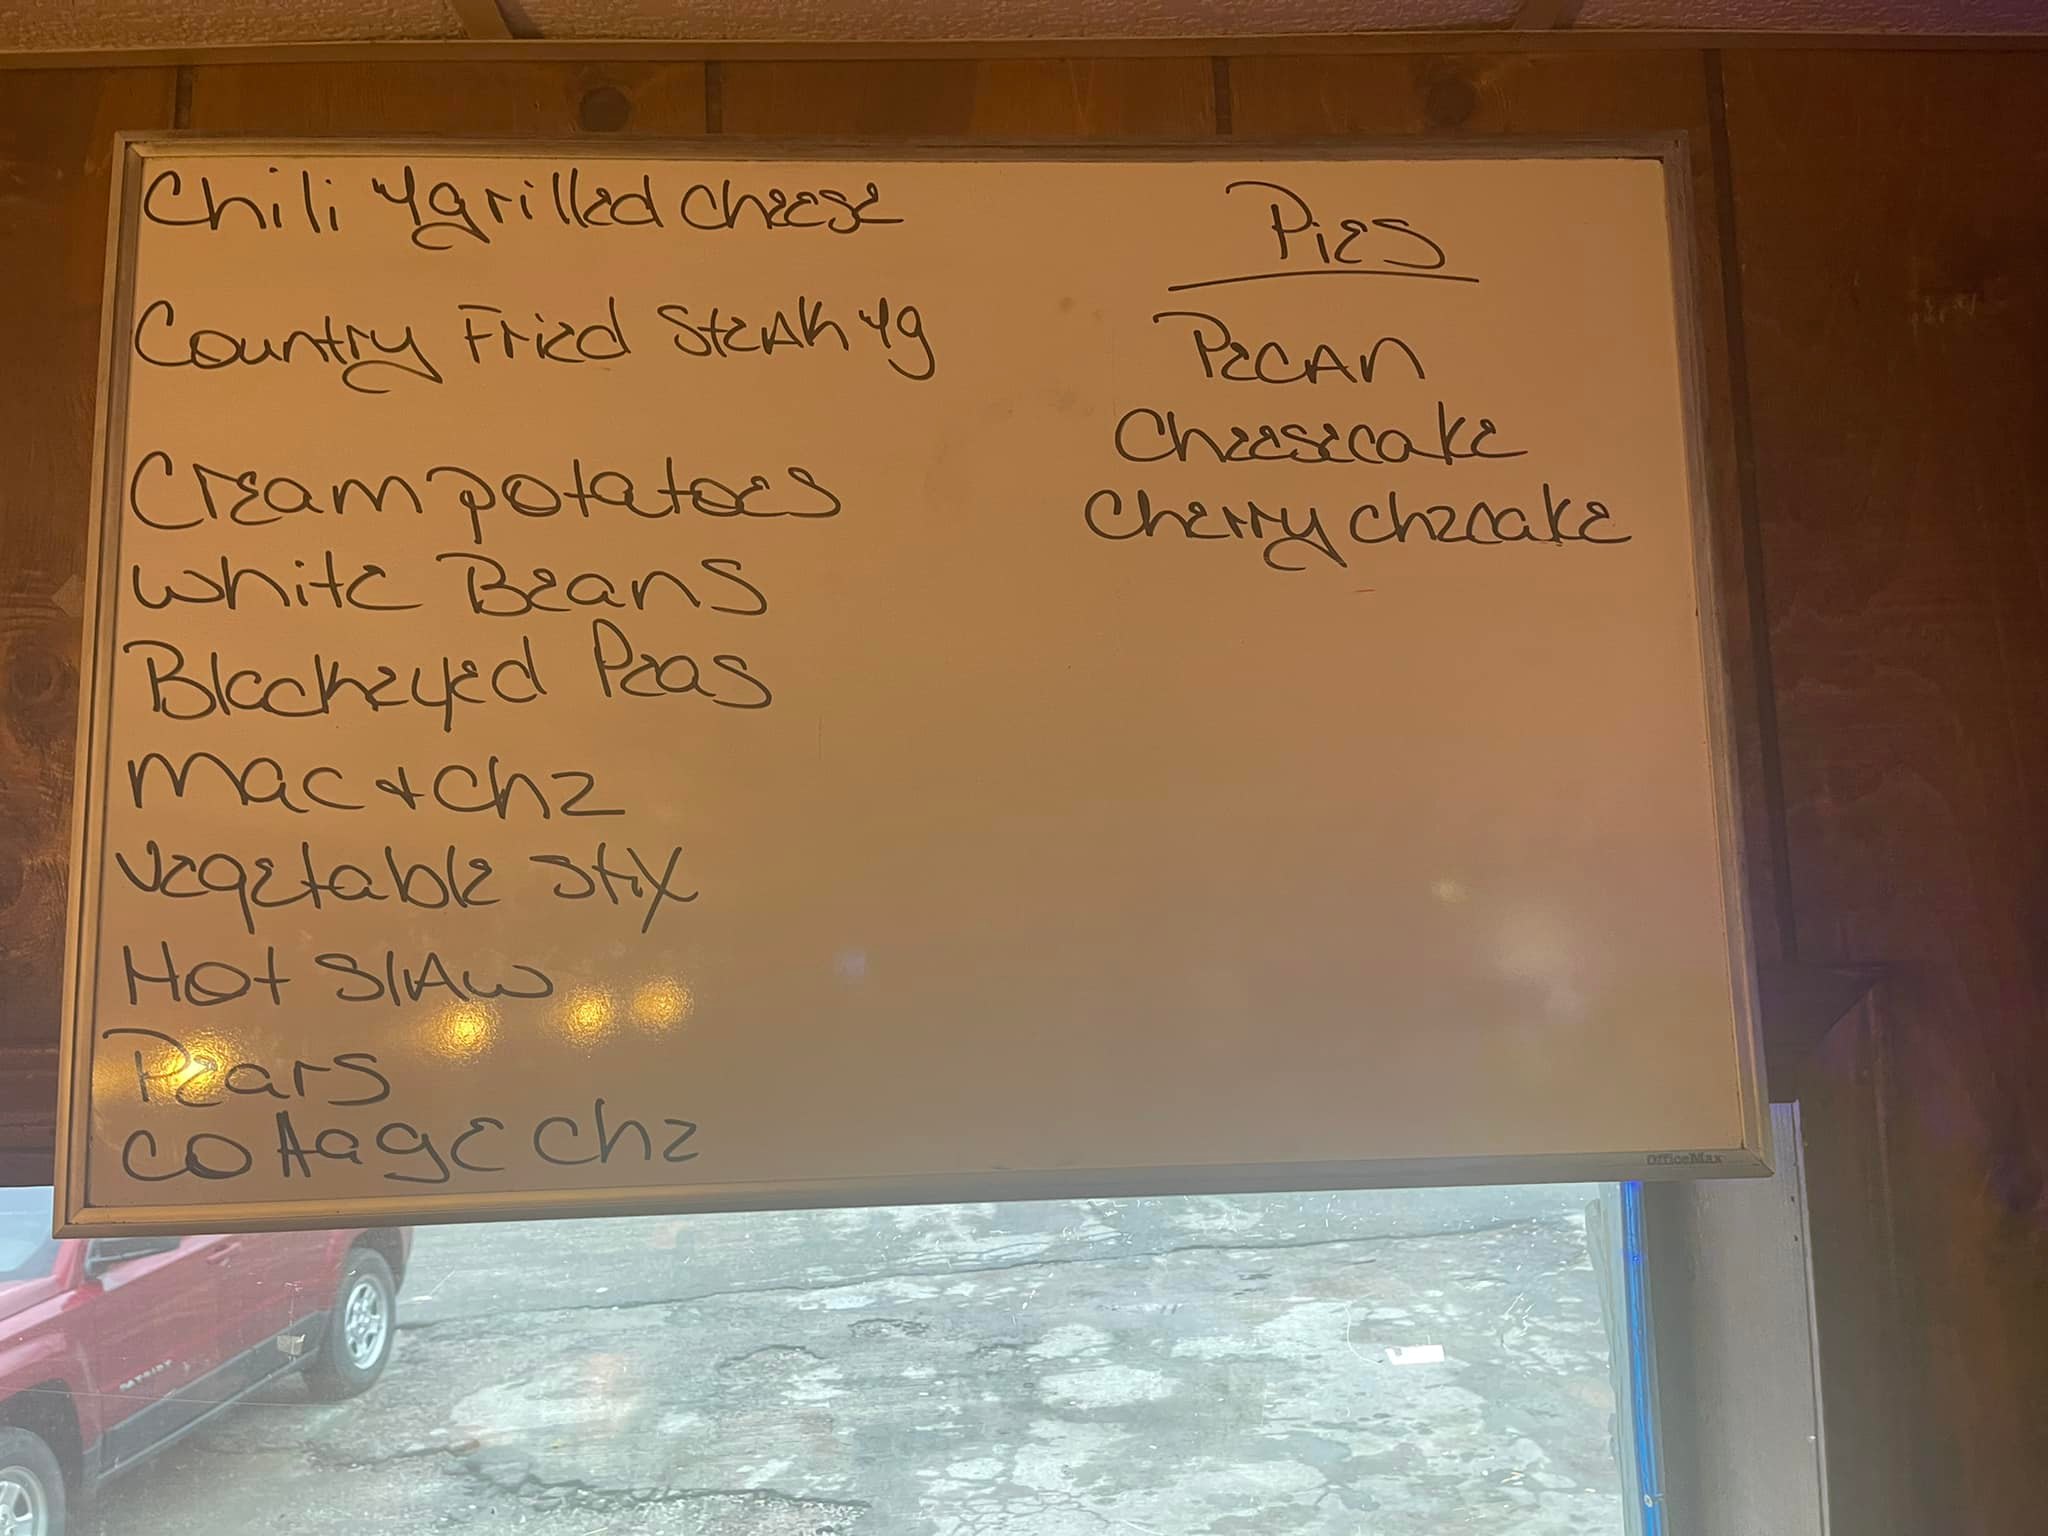 Chili y grilled cheese
Country Fried Steak y g
Cream potatoes
White Beans
Blackeyed Peas
Mac + chz
Vegetable Stix
Hot Slaw
Pears
Cottage chz
Pies
Pecan
Cheesecake
Cherry chzcake
OfficeMax
PATRIOT